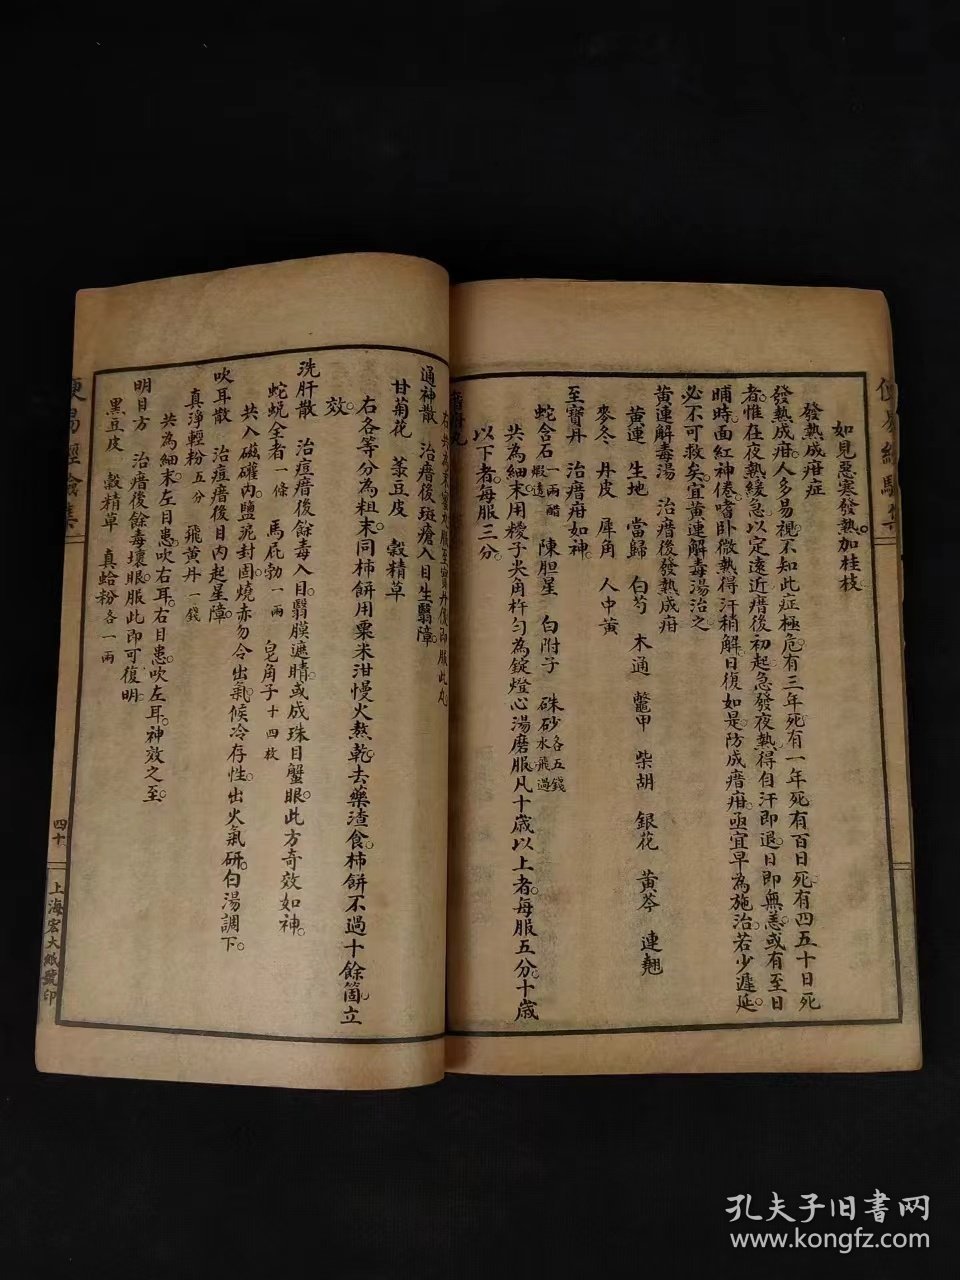 如見惡寒發熱加桂枝
發熱成疳症
發熱成疳人多易視不知此症極危有三年死有一年死有百日死有四五十日死
者惟在夜熱緩急以定遠近瘄後初起急發夜熱得自汗即退日即無恙或有至日
晡時面紅神倦嗜卧微熱得汗稍解日復如是防成瘄疳亟宜早為施治若少遲延
必不可救矣宜黄連解毒湯治之
黄連解毒湯　治瘄後發熱成疳
黄連　生地　當歸　白芍　木通　鼈甲　柴胡　銀花　黄芩　連翹
麥冬　丹皮　犀角　人中黄
至寶丹　治瘄疳如神
蛇含石一兩醋煅透　陳胆星　白附子　硃砂各五錢水飛過
共為細末用糉子尖角杵勻為錠燈心湯磨服凡十歲以上者每服五分十歲
以下者每服三分
通神散　治瘄後斑瘡入目生翳障
甘菊花　菉豆皮　穀精草
右各等分為粗末同柿餅用粟米泔慢火熬乾去藥渣食柿餅不過十餘箇立
效
洗肝散　治痘瘄後餘毒入目翳膜遮睛或成珠目蟹眼此方奇效如神
蛇蜕全者一條　馬庇勃一兩　皂角子十四枚
共入磁罐内鹽泥封固燒赤勿令出氣候冷存性出火氣研白湯調下
吹耳散　治痘瘄後目内起星障
真淨輕粉五分　飛黄丹一錢
共為細末左目患吹右耳右目患吹左耳神效之至
明目方　治瘄後餘毒壞眼服此即可復明
黑豆皮　穀精草　真蛤粉各一兩
便易經驗集
四十
上海宏大紙號印
孔夫子旧书网
www.kongfz.com